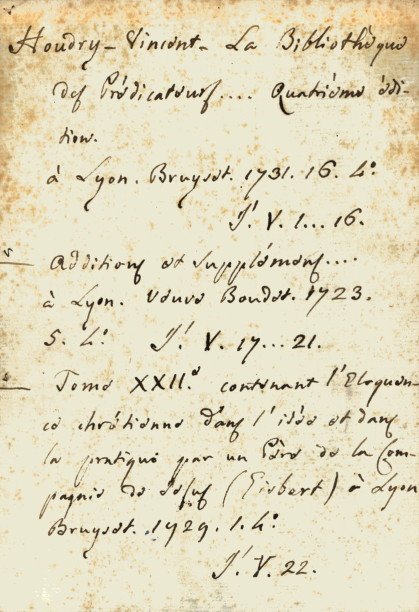 Houdry - Vincent - La Bibliothèque
des Prédicateurs.... Quatriéme édi-
tion.
à Lyon. Bruyset. 1731. 16. 4.º
J! V. 1... 16.
Additions et Supplémens....
à Lyon. Veuve Boudet. 1723.
5. 4.º J! V. 17...21.
Tome XXII.º contenant l'Eloquen-
ce chrétienne dans l'idée et dans
la pratique par un Père de la Com-
pagnie de Jesus (Gisbert) à Lyon
Bruyset. 1729. 1. 4.º
J! V. 22.